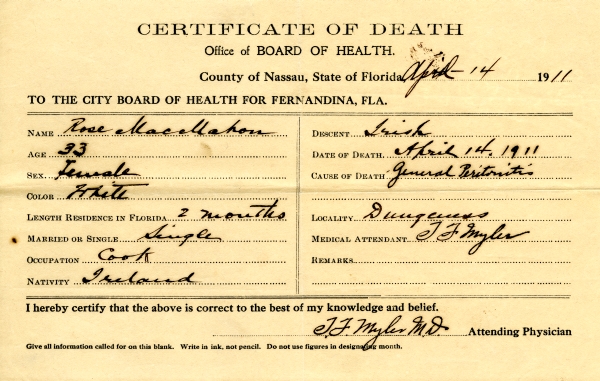 CERTIFICATE OF DEATH
Office of BOARD OF HEALTH.
County of Nassau, State of Florida, April 14 1911
TO THE CITY BOARD OF HEALTH FOR FERNANDINA, FLA.
NAME Rose MacMahon
AGE 33
SEX Female
COLOR White
LENGTH RESIDENCE IN FLORIDA 2 months
MARRIED OR SINGLE Single
OCCUPATION Cook
NATIVITY Ireland
DESCENT Irish
DATE OF DEATH April 14, 1911
CAUSE OF DEATH General Peritonitis
LOCALITY Dungeness
MEDICAL ATTENDANT J F Myler
REMARKS
I hereby certify that the above is correct to the best of my knowledge and belief.
J. F. Myler M.D. Attending Physician
Give all information called for on this blank. Write in ink, not pencil. Do not use figures in designating month.